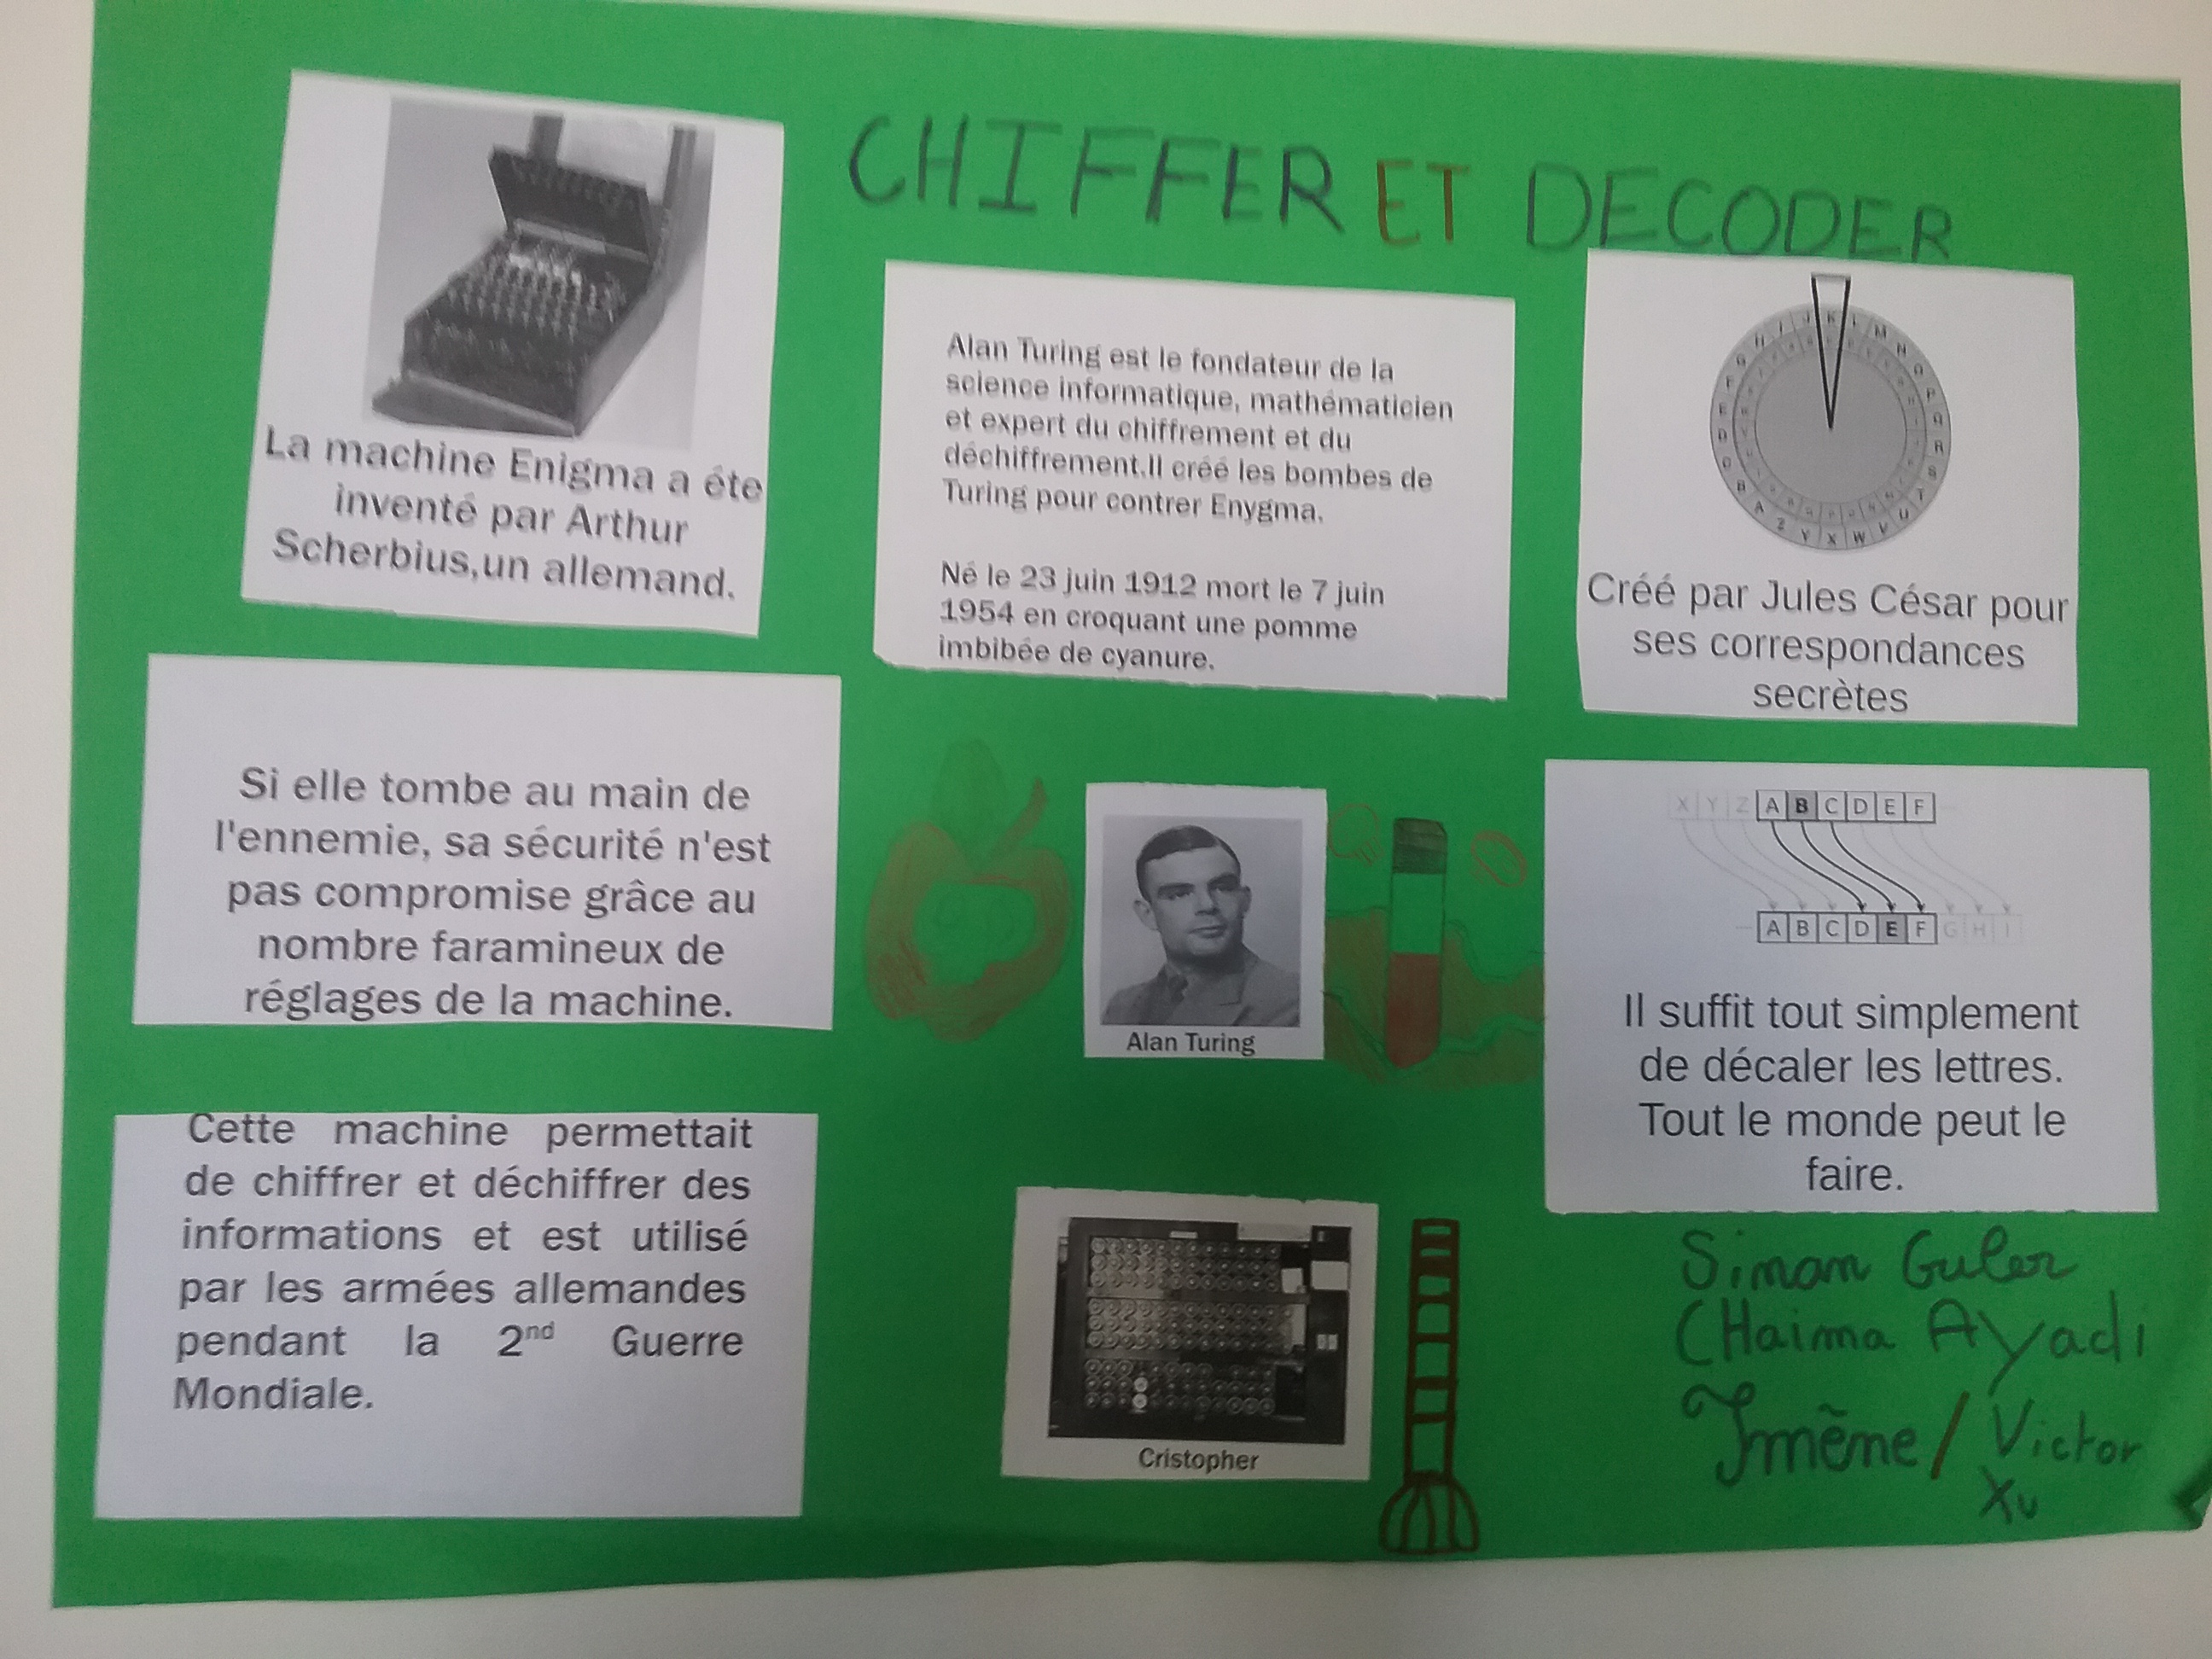 CHIFFER ET DECODER
La machine Enigma a éte
inventé par Arthur
Scherbius,un allemand.
Alan Turing est le fondateur de la
science informatique, mathématicien
et expert du chiffrement et du
déchiffrement.Il créé les bombes de
Turing pour contrer Enygma.
Né le 23 juin 1912 mort le 7 juin
1954 en croquant une pomme
imbibée de cyanure.
Créé par Jules César pour
ses correspondances
secrètes
Si elle tombe au main de
l'ennemie, sa sécurité n'est
pas compromise grâce au
nombre faramineux de
réglages de la machine.
Alan Turing
X Y Z A B C D E F
A B C D E F G H I
Il suffit tout simplement
de décaler les lettres.
Tout le monde peut le
faire.
Cette machine permettait
de chiffrer et déchiffrer des
informations et est utilisé
par les armées allemandes
pendant la 2nd Guerre
Mondiale.
Cristopher
Simon Guler
CHaima Ayadi
Imēne / Victor
Xu